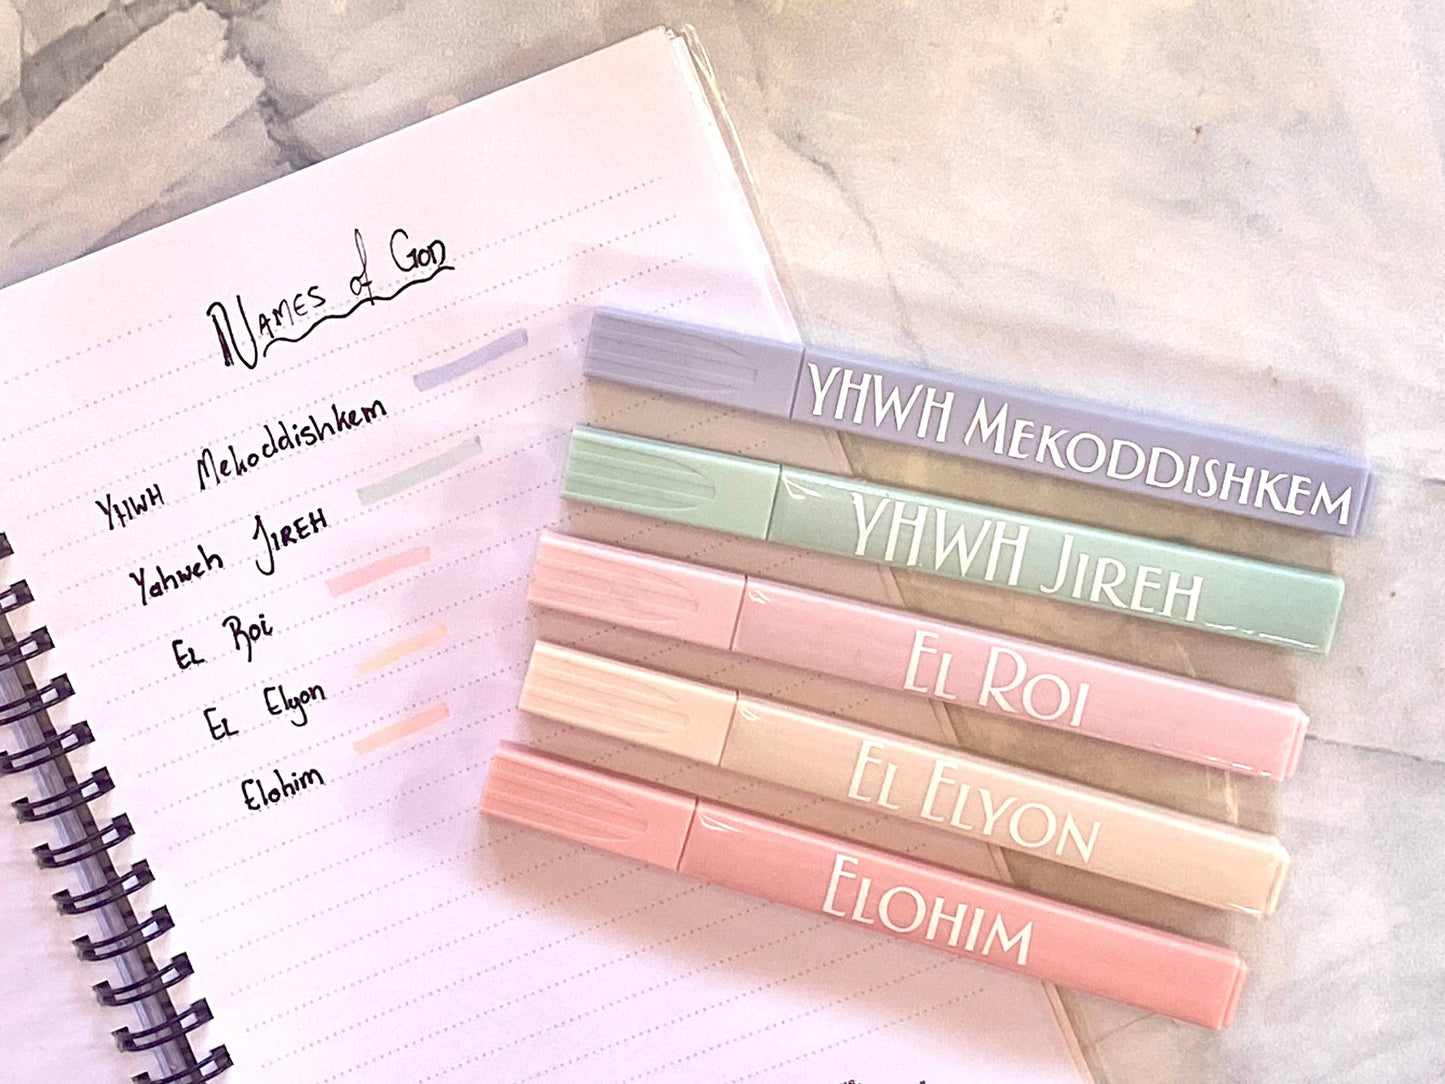 Names of God
YHWH Mekoddishkem
Yahweh Jireh
El Roi
El Elyon
Elohim
YHWH Mekoddishkem
YHWH Jireh
El Roi
El Elyon
Elohim